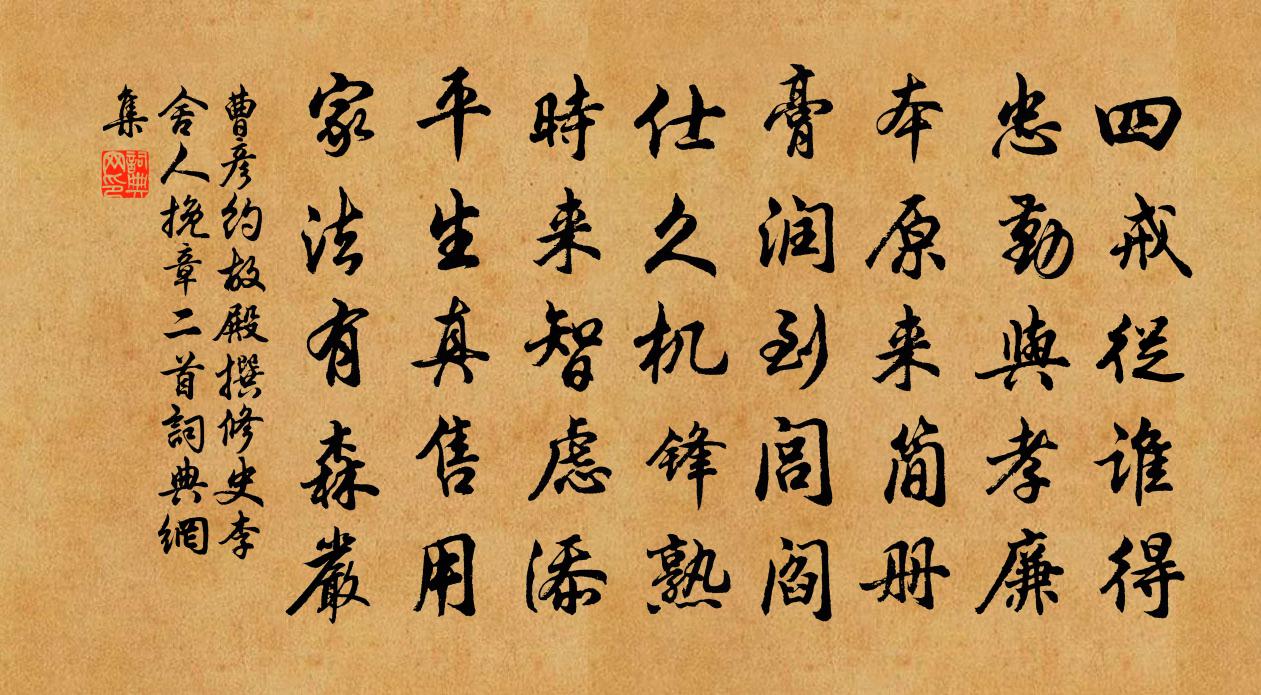 四戒從谁得
忠勤與孝廉
本原来简册
膏润到闾阎
仕久机锋熟
時来智虑添
平生真售用
家法有森嚴
曹彦约故殿撰修史李
舍人挽章二首詞典網
集
詞典网印